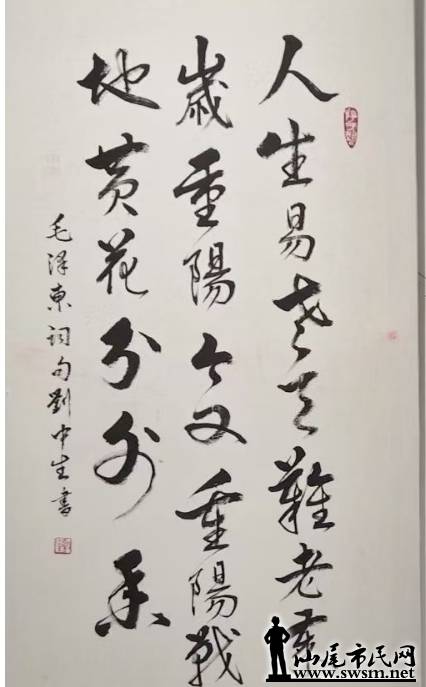 人生易老天難老歲
歲重陽今又重陽戰
地黃花分外香
毛澤東詞句劉中生書
汕尾市民网
www.swsm.net